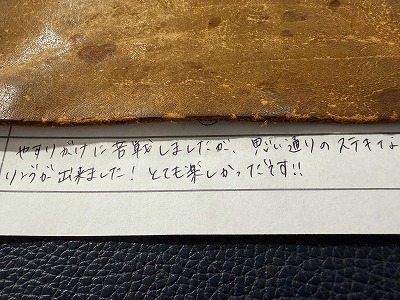 やすりがけに苦戦しましたが、思い通りのステキな
リングが出来ました！とても楽しかったです!!